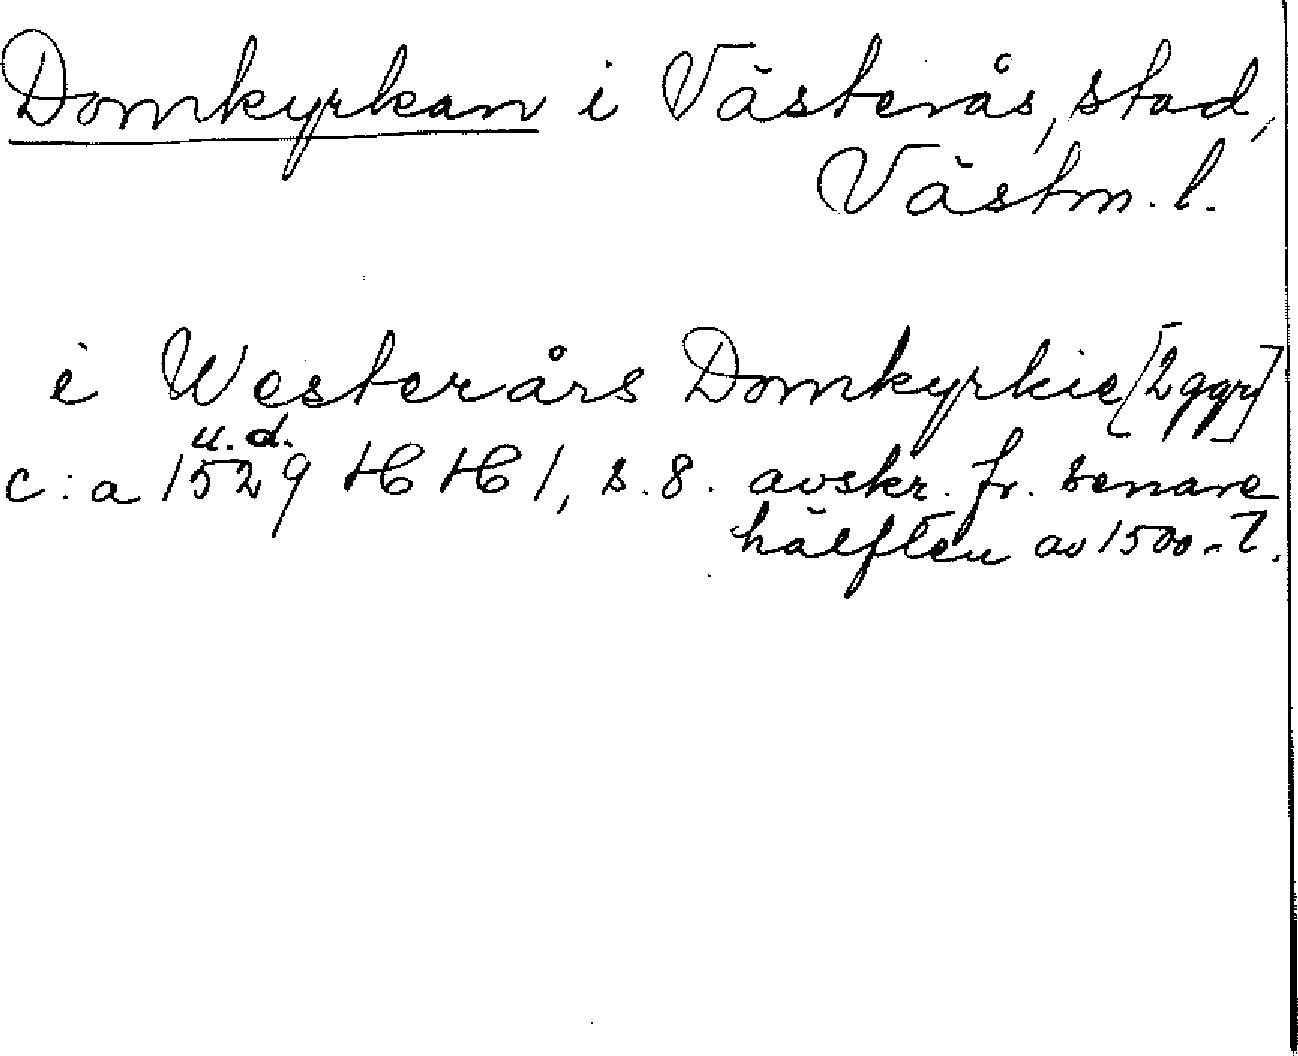 Domkyrkan i Västerås, stad,
Västm. l.
i Westerårs Domkyrkie [2 ggr]
u. d.
c:a 1529 HH 1, s. 8. avskr. fr. senare
hälften av 1500-t.